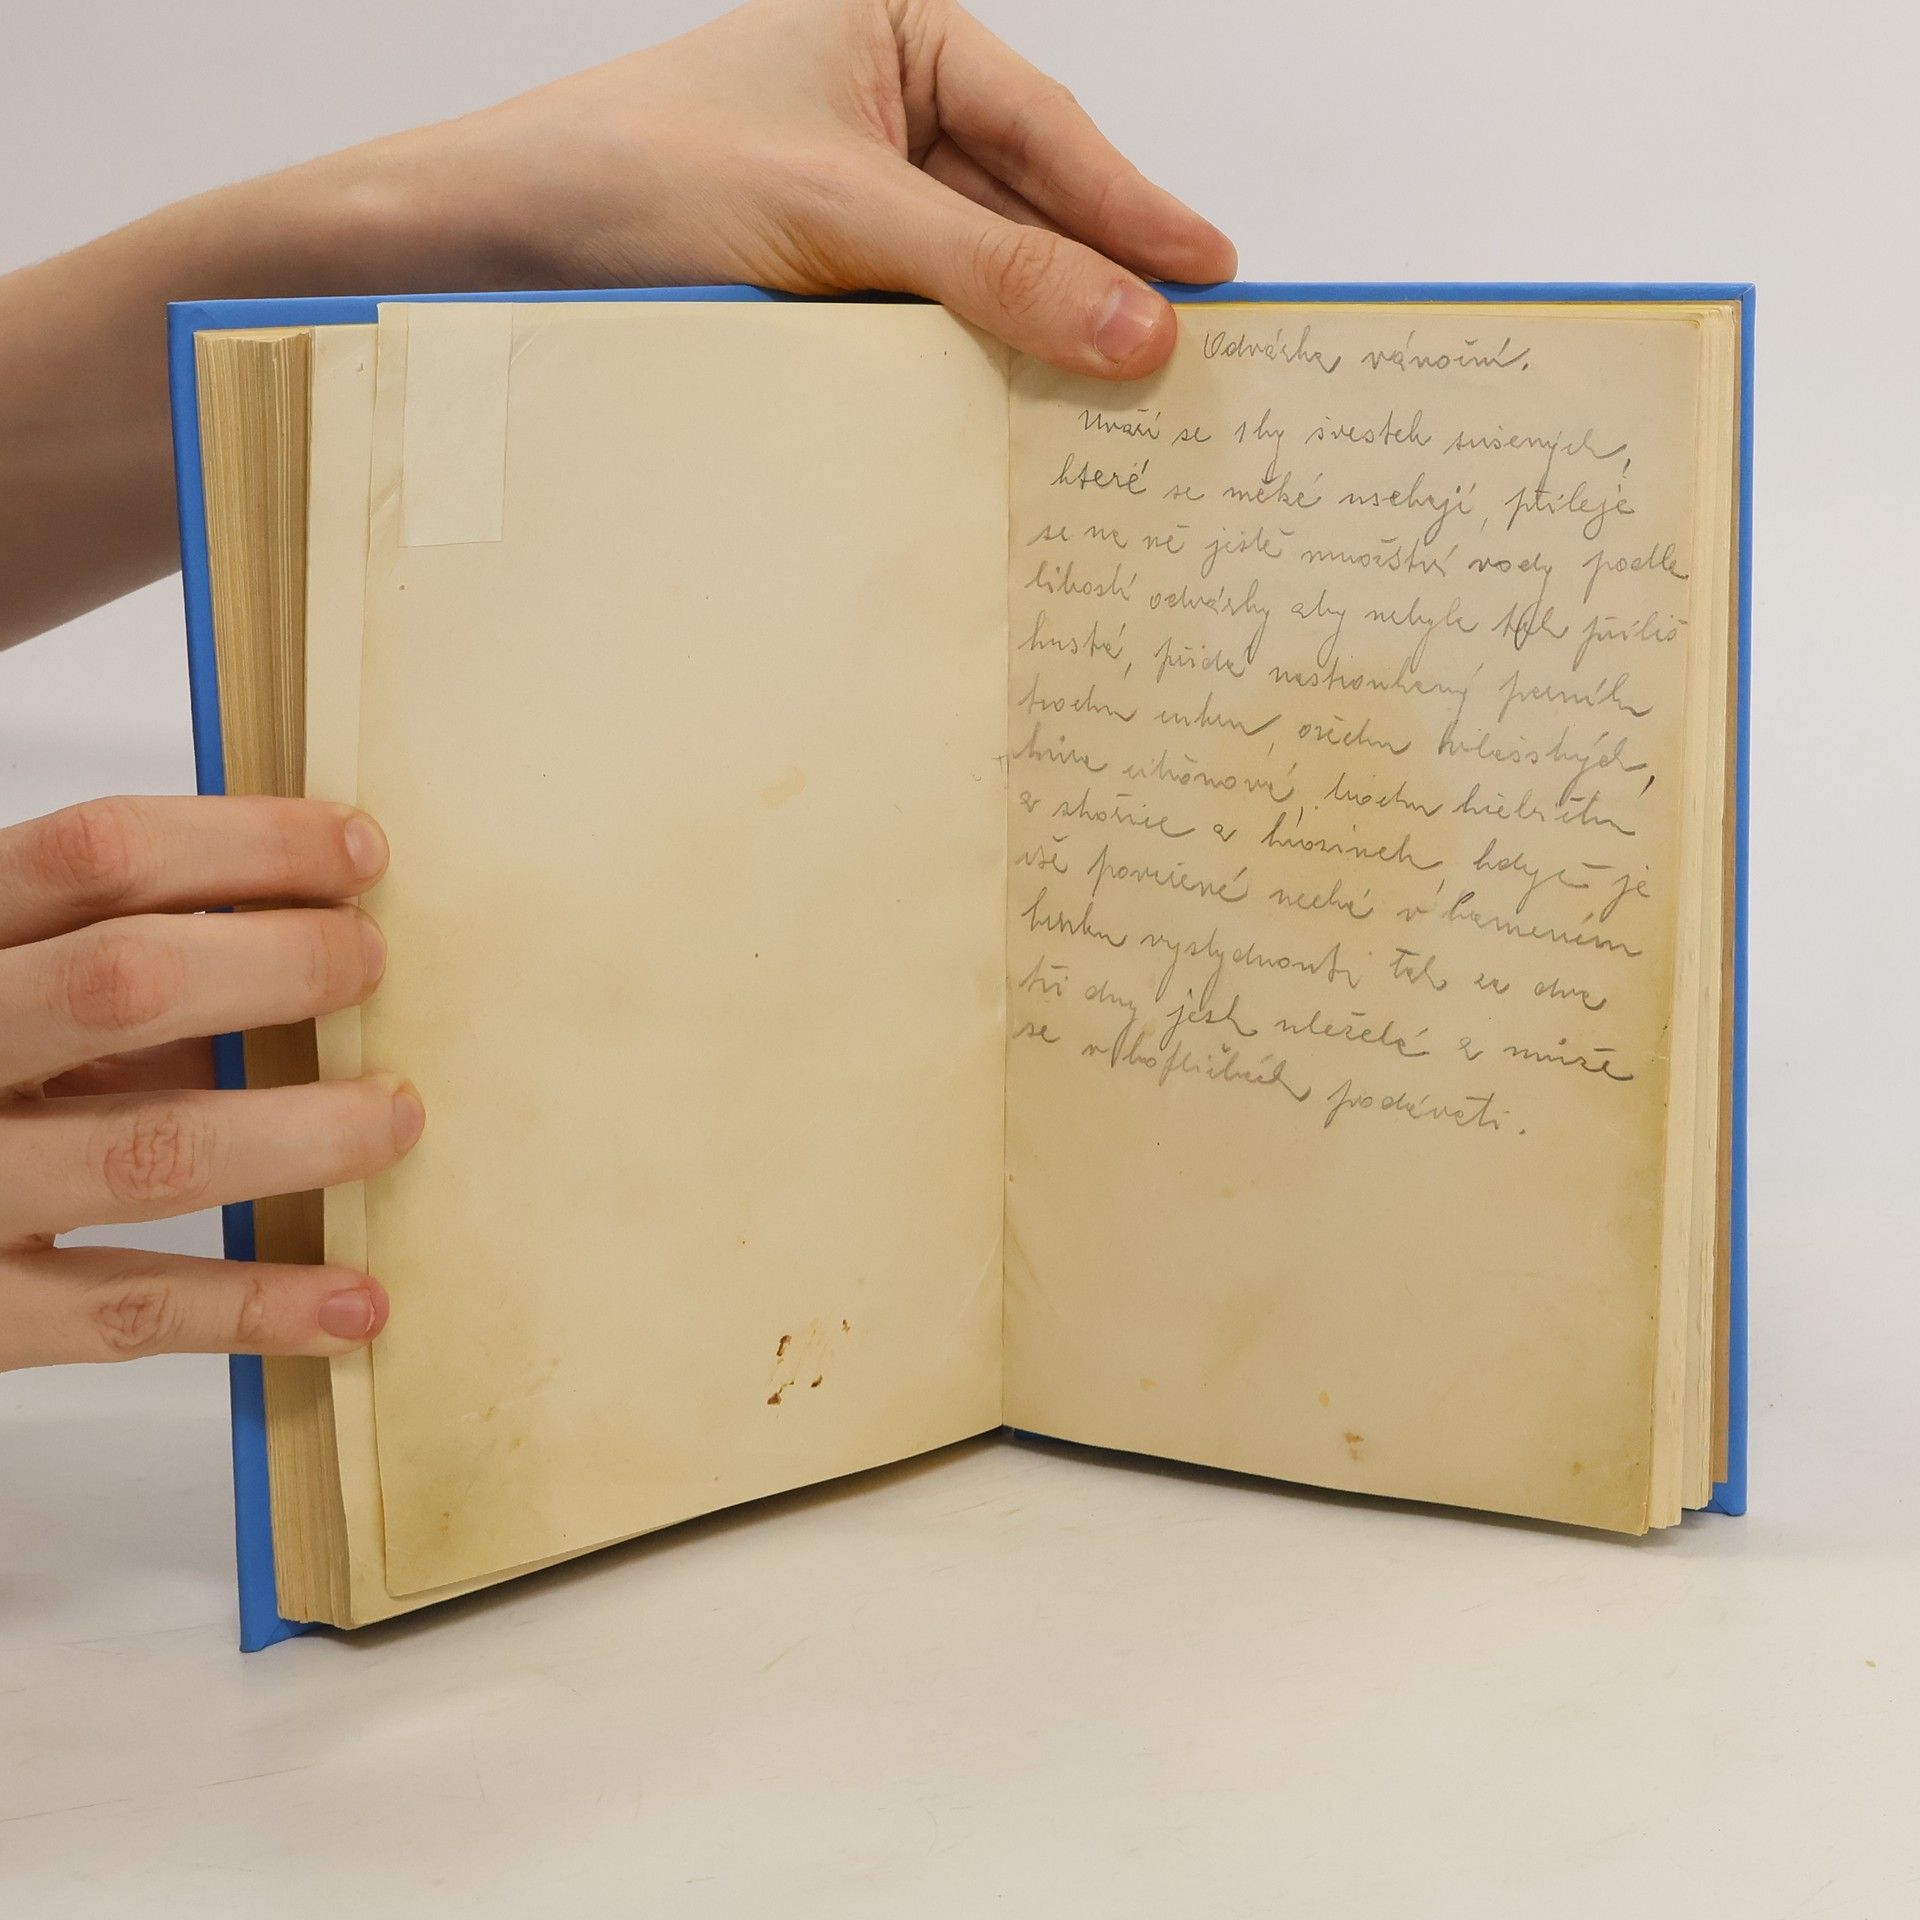 Odvárka vánoční.
Uvaří se 1 kg švestek sušených,
které se měkké usekají, přileje
se na ně jistě množství vody podle
libosti odvárky aby nebyla tak příliš
hustá, přidá nastrouhaný perníku
trochu cukru, ořechu vlašských,
kůra citrónová, trochu hřebíčku
a skořice a hrozinek, když je
vše povařené nechá v kameném
hrnku vystydnouti tak za dva
tři dny jest uležela a může
se v koflíčkách podávati.